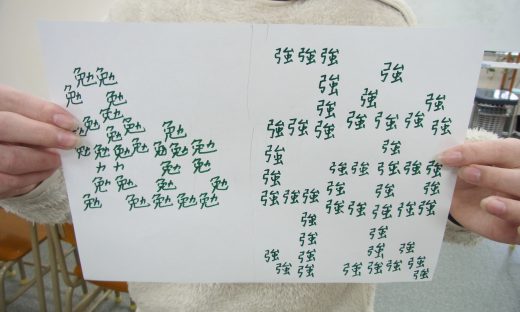 勉勉
勉 勉
勉勉
勉勉勉
勉勉勉勉勉勉勉
力力 勉勉
勉勉 勉 勉
勉 勉勉勉勉
強強強
強 強
強 強 強
強強強 強強強強
強 強
強 強強強強強
強 強 強 強
強強強 強強強強強
強
強 強
強 強 強 強
強強 強強強強
強